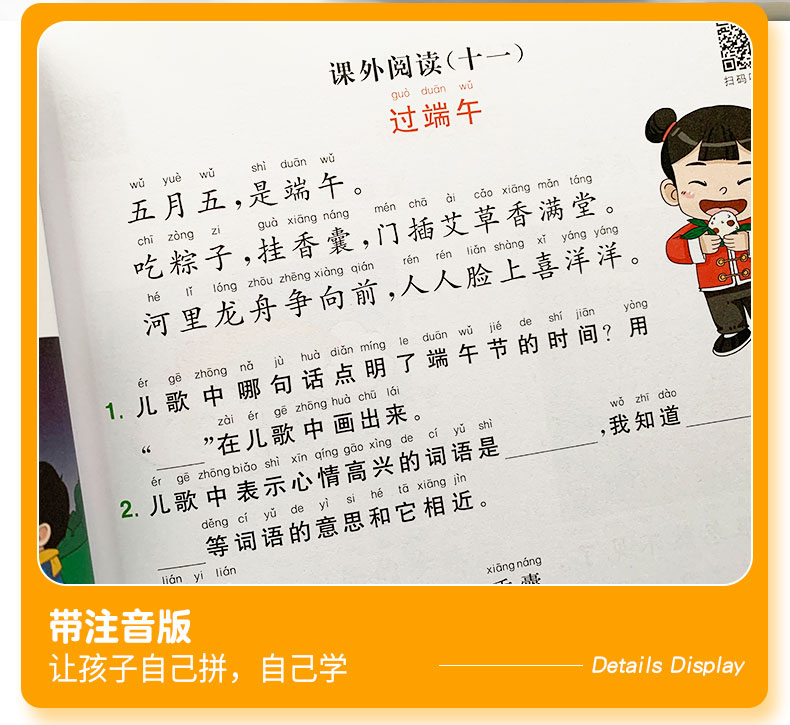 课外阅读(十一)
扫码
guò duān wǔ
过端午
wǔ yuè wǔ shì duān wǔ
五月五,是端午。
chī zòng zi guà xiāng náng mén chā ài cǎo xiāng mǎn táng
吃粽子,挂香囊,门插艾草香满堂。
hé lǐ lóng zhōu zhēng xiàng qián rén rén liǎn shàng xǐ yáng yáng
河里龙舟争向前,人人脸上喜洋洋。
ér gē zhōng nǎ jù huà diǎn míng le duān wǔ jié de shí jiān yòng
1. 儿歌中哪句话点明了端午节的时间?用
zài ér gē zhōng huà chū lái
“____”在儿歌中画出来。
ér gē zhōng biǎo shì xīn qíng gāo xìng de cí yǔ shì wǒ zhī dào
2. 儿歌中表示心情高兴的词语是______,我知道____
děng cí yǔ de yì si hé tā xiāng jìn
____等词语的意思和它相近。
lián yi lián
xiāng náng
带注音版
让孩子自己拼，自己学
Details Display